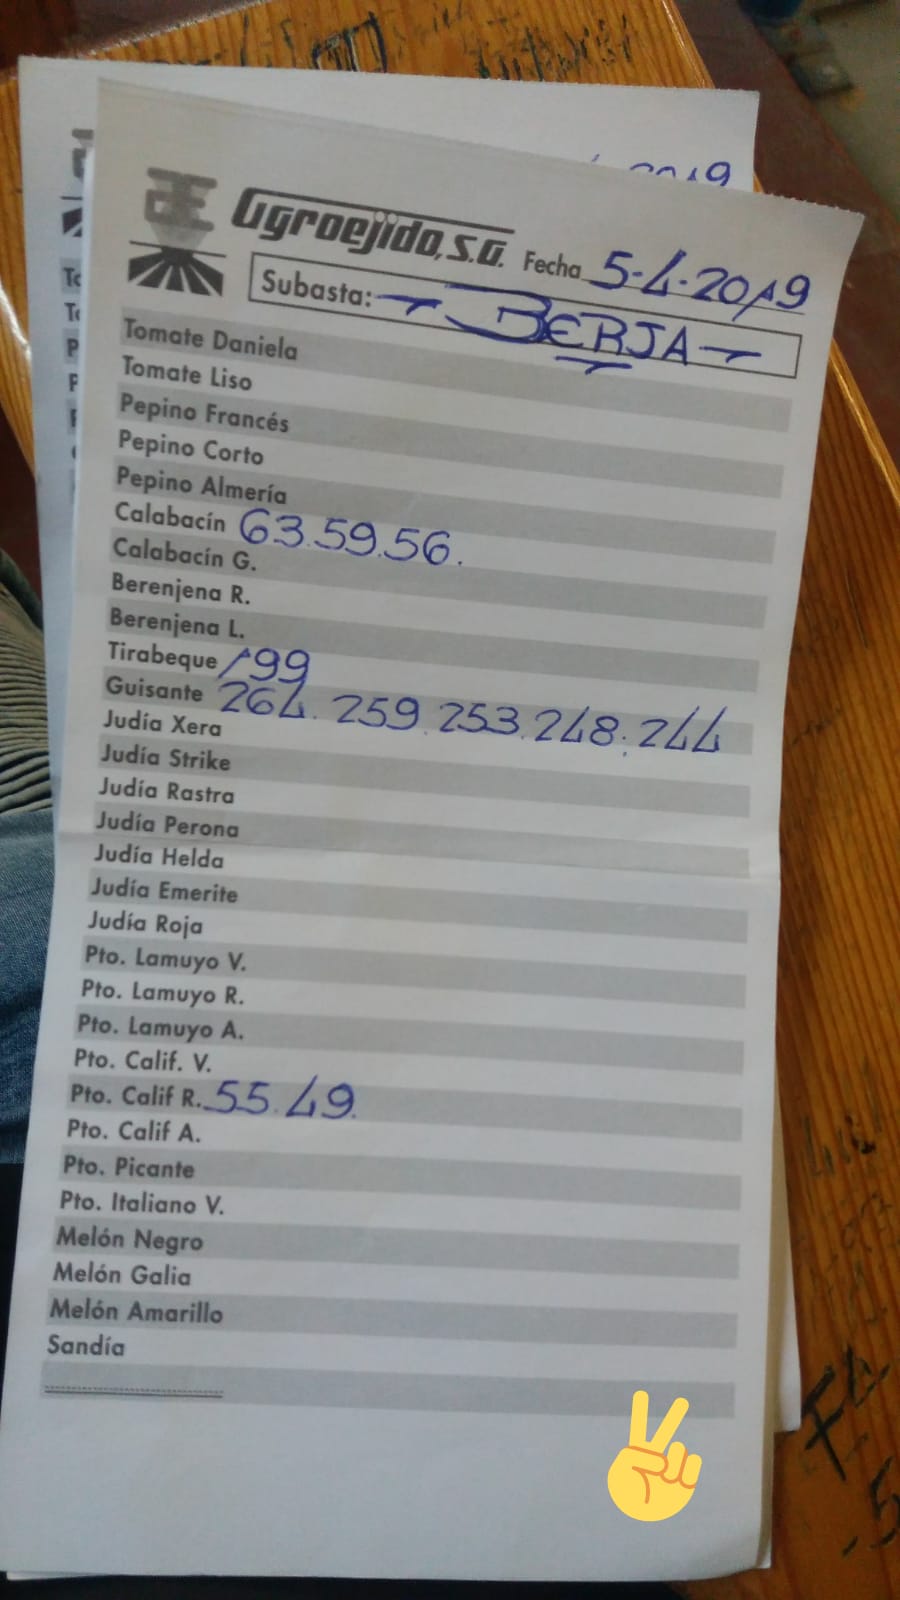 2019
Agroejido, S.A. Fecha 5-4-2019
Subasta: - BERJA -
Tomate Daniela
Tomate Liso
Pepino Francés
Pepino Corto
Pepino Almería
Calabacín 63.59.56.
Calabacín G.
Berenjena R.
Berenjena L.
Tirabeque 199
Guisante 264.259.253.248.244
Judía Xera
Judía Strike
Judía Rastra
Judía Perona
Judía Helda
Judía Emerite
Judía Roja
Pto. Lamuyo V.
Pto. Lamuyo R.
Pto. Lamuyo A.
Pto. Calif. V.
Pto. Calif R. 55.49.
Pto. Calif A.
Pto. Picante
Pto. Italiano V.
Melón Negro
Melón Galia
Melón Amarillo
Sandía